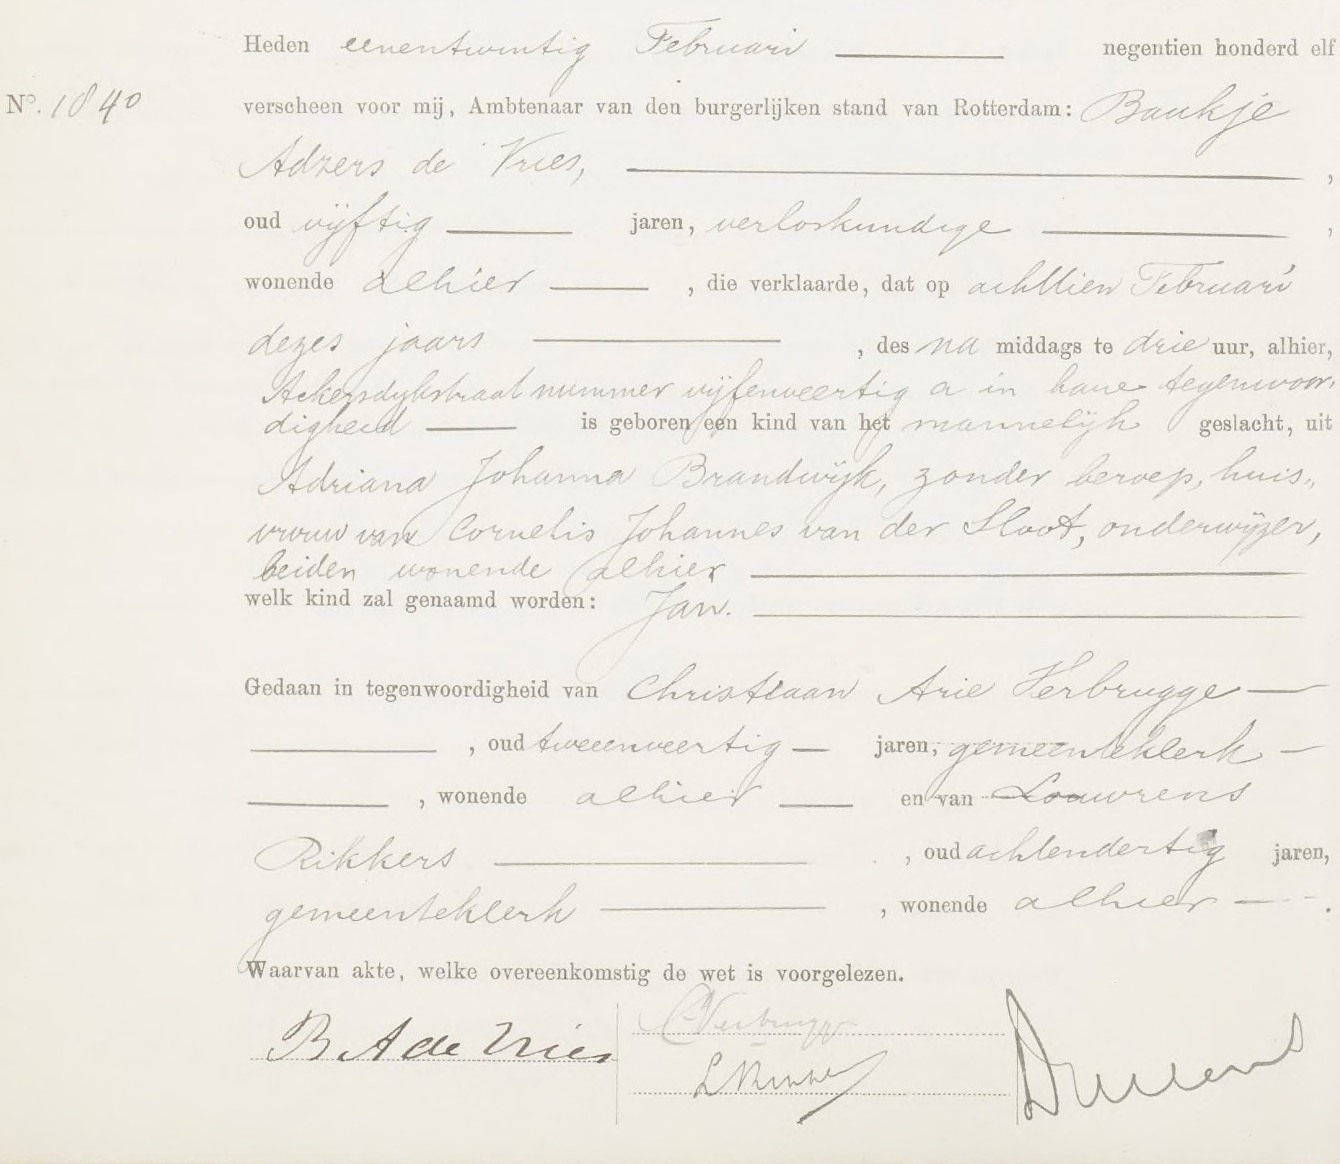 Heden eenentwintig Februari negentien honderd elf
No. 1840 verscheen voor mij, Ambtenaar van den burgerlijken stand van Rotterdam: Baukje
Adzers de Vries, ,
oud vijftig jaren, verloskundige ,
wonende alhier , die verklaarde, dat op achttien Februari
dezes jaars , des na middags te drie uur, alhier,
Ackersdijkstraat nummer vijfenveertig a in hare tegenwoor-
digheid is geboren een kind van het mannelijk geslacht, uit
Adriana Johanna Brandwijk, zonder beroep, huis-
vrouw van Cornelis Johannes van der Sloot, onderwijzer,
beiden wonende alhier
welk kind zal genaamd worden: Jan.
Gedaan in tegenwoordigheid van Christiaan Arie Verbrugge
, oud tweeenveertig jaren, gemeenteklerk
, wonende alhier en van Louwrens
Rikkers , oud achtendertig jaren,
gemeenteklerk , wonende alhier .
Waarvan akte, welke overeenkomstig de wet is voorgelezen.
B A de Vries
C A Verbrugge
L Rikkers